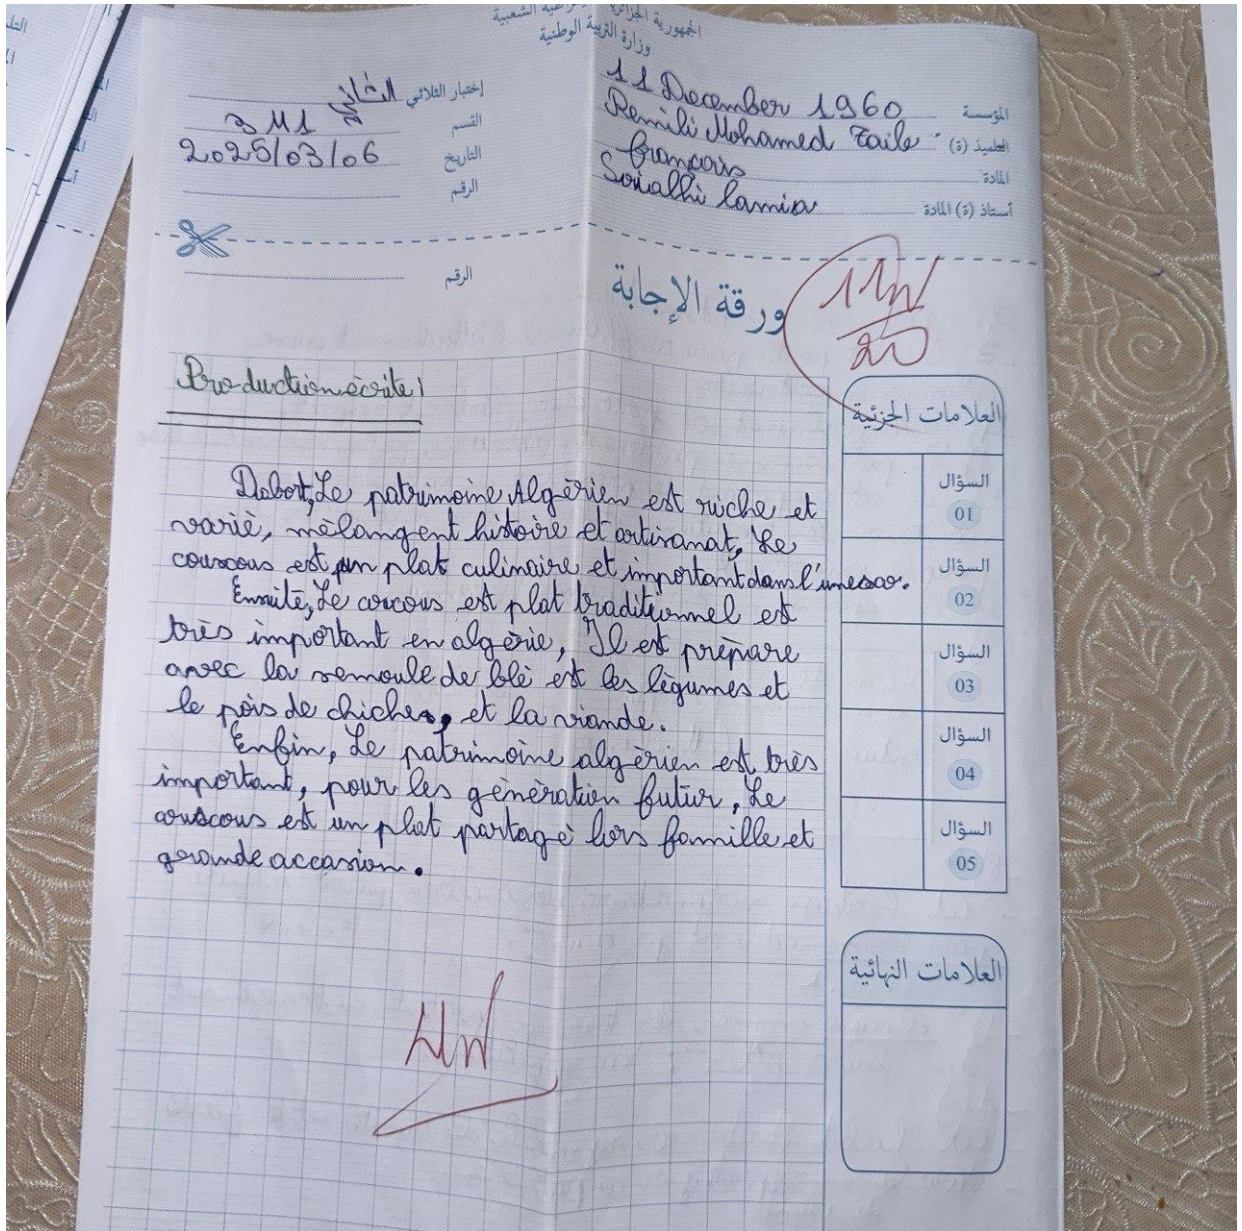 الجمهورية الجزائرية الديمقراطية الشعبية
وزارة التربية الوطنية
المؤسسة 11 December 1960
التلميذ (ة) Remili Mohamed
المادة français
أستاذ (ة) المادة Soualhi lamia
إختبار الثلاثي الثاني
القسم 3 M1
التاريخ 2025/03/06
الرقم
الرقم
ورقة الإجابة
11
20
Production écrite
Dabort, Le patrimoine Algèrien est riche et
variè, mèlangent histoire et artisanat, Le
couscous est un plat culinaire et important dans l'unesco.
Ensuite, Le coucous est plat traditionnel est
très important en algèrie, Il est prèpare
avec la semoule de blè est les lègumes et
le pois de chiches, et la viande.
Enfin, Le patrimoine algèrien est très
important, pour les gènèration futur, Le
couscous est un plat partagè lors famille et
grande accasion.
العلامات الجزئية
السؤال
01
السؤال
02
السؤال
03
السؤال
04
السؤال
05
العلامات النهائية